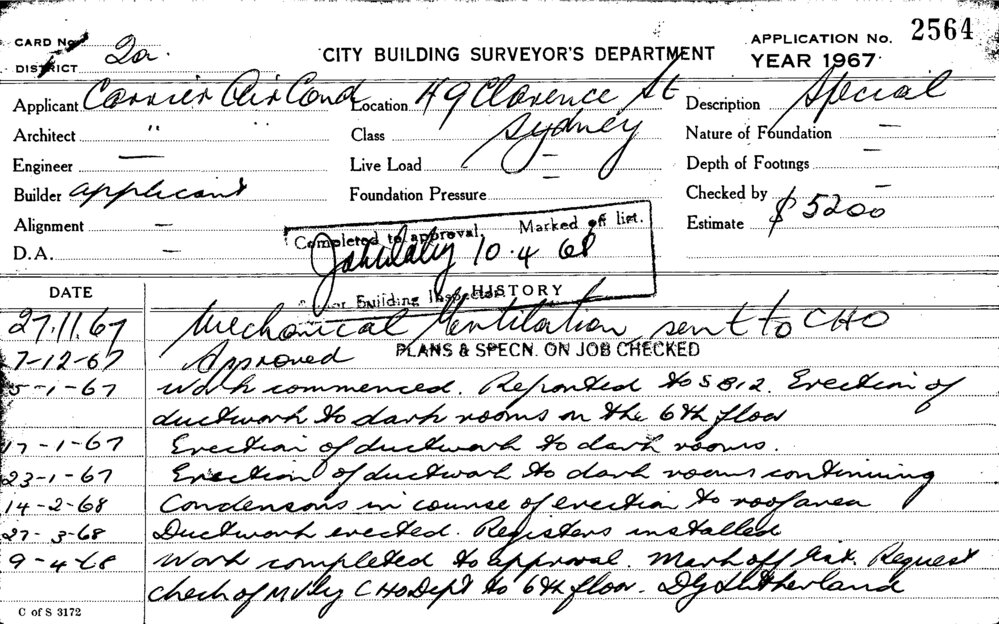 CARD No. 2a. CITY BUILDING SURVEYOR'S DEPARTMENT APPLICATION No. 2564
DISTRICT YEAR 1967
Applicant Carrier Air Cond Location 49 Clarence St Description Special
Architect " " Class Sydney Nature of Foundation —
Engineer — Live Load — Depth of Footings —
Builder applicant Foundation Pressure — Checked by
Alignment — Completed to approval. Marked off list. Estimate $5200
D.A. — 10.4 68
Building Inspector HISTORY
DATE
27.11.67 Mechanical Ventilation sent to CHO
7-12-67 Approved PLANS & SPECN. ON JOB CHECKED
5-1-67 Work commenced. Reported to SBI2. Erection of
ductwork to dark rooms on the 6th floor
17-1-67 Erection of ductwork to dark rooms.
23-1-67 Erection of ductwork to dark rooms continuing
14-2-68 Condensors in course of erection to roof area
27-3-68 Ductwork erected. Registers installed
9-4-68 Work completed to approval. Mark off list. Request
check of by CHO Dept to 6th floor. Sutherland
C of S 3172